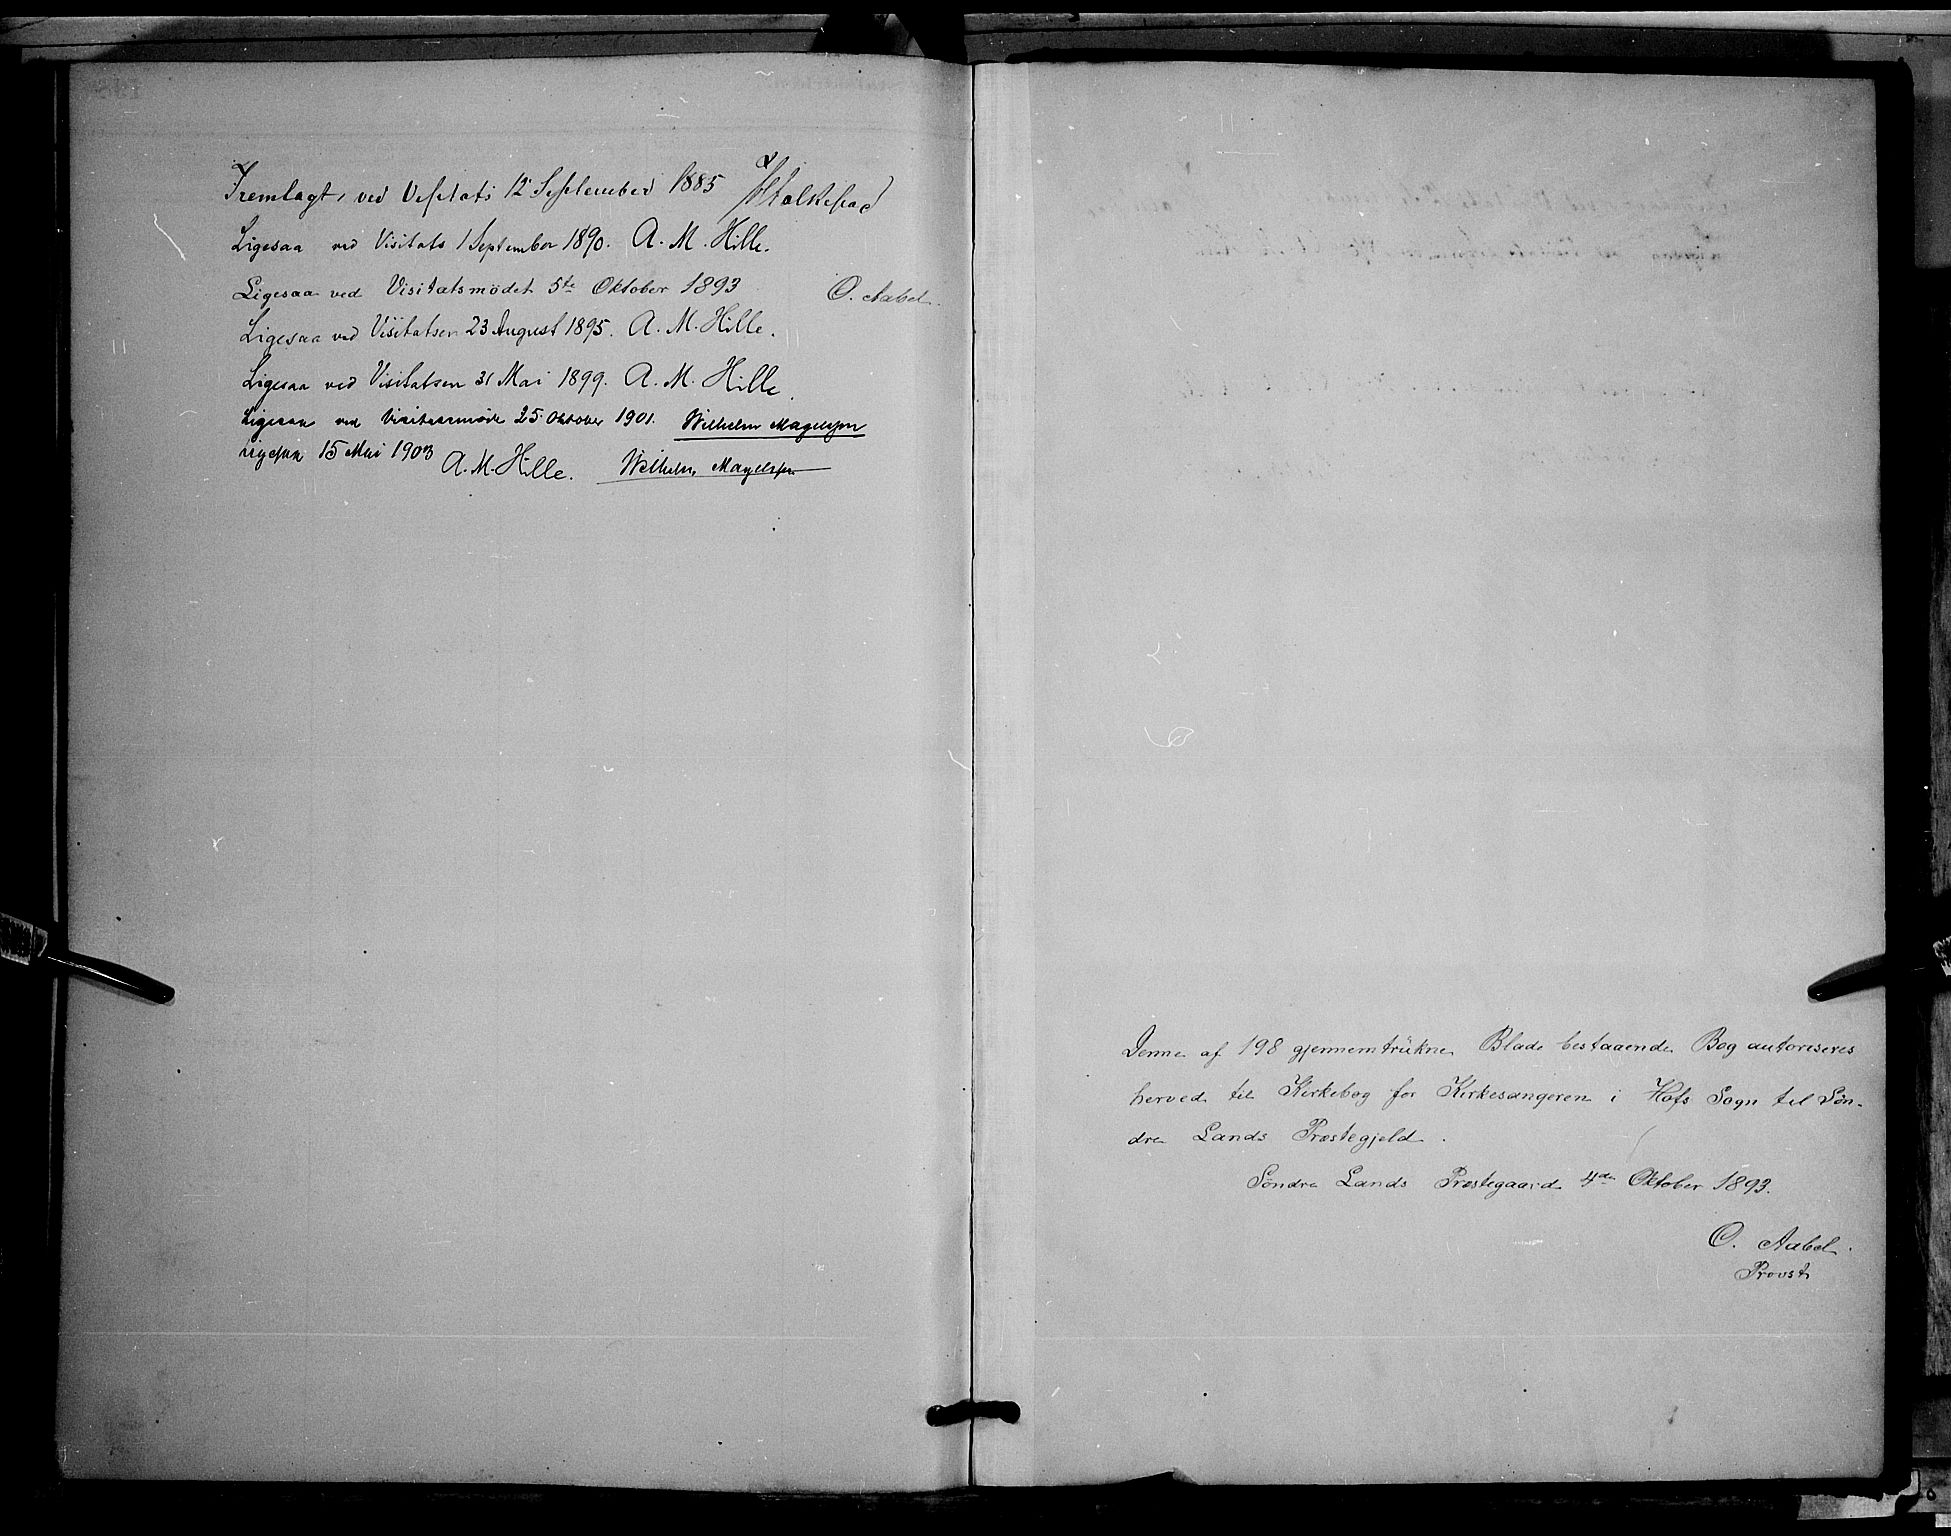 Fremlagt ved Visitats 12 September 1885
Ligesaa ved Visitats 1 September 1890. A. M. Hille.
Ligesaa ved Visitatsmödet 5te Oktober 1893 O. Aabel.
Ligesaa ved Visitatsen 23 August 1895. A. M. Hille.
Ligesaa ved Visitatsen 31 Mai 1899. A. M. Hille.
Ligesaa ved Visitatsmöde 25 Oktober 1901. Wilhelm Magelssen
Ligesaa 15 Mai 1903 A. M. Hille. Wilhelm Magelssen
Denne af 198 gjennemtrukne Blade bestaaende Bog autoriseres
herved til Kirkebog for Kirkesangeren i Hofs Sogn til Søn-
dre Lands Præstegjeld.
Søndre Lands Præstegaard 4de Oktober 1893.
O. Aabel.
Provst